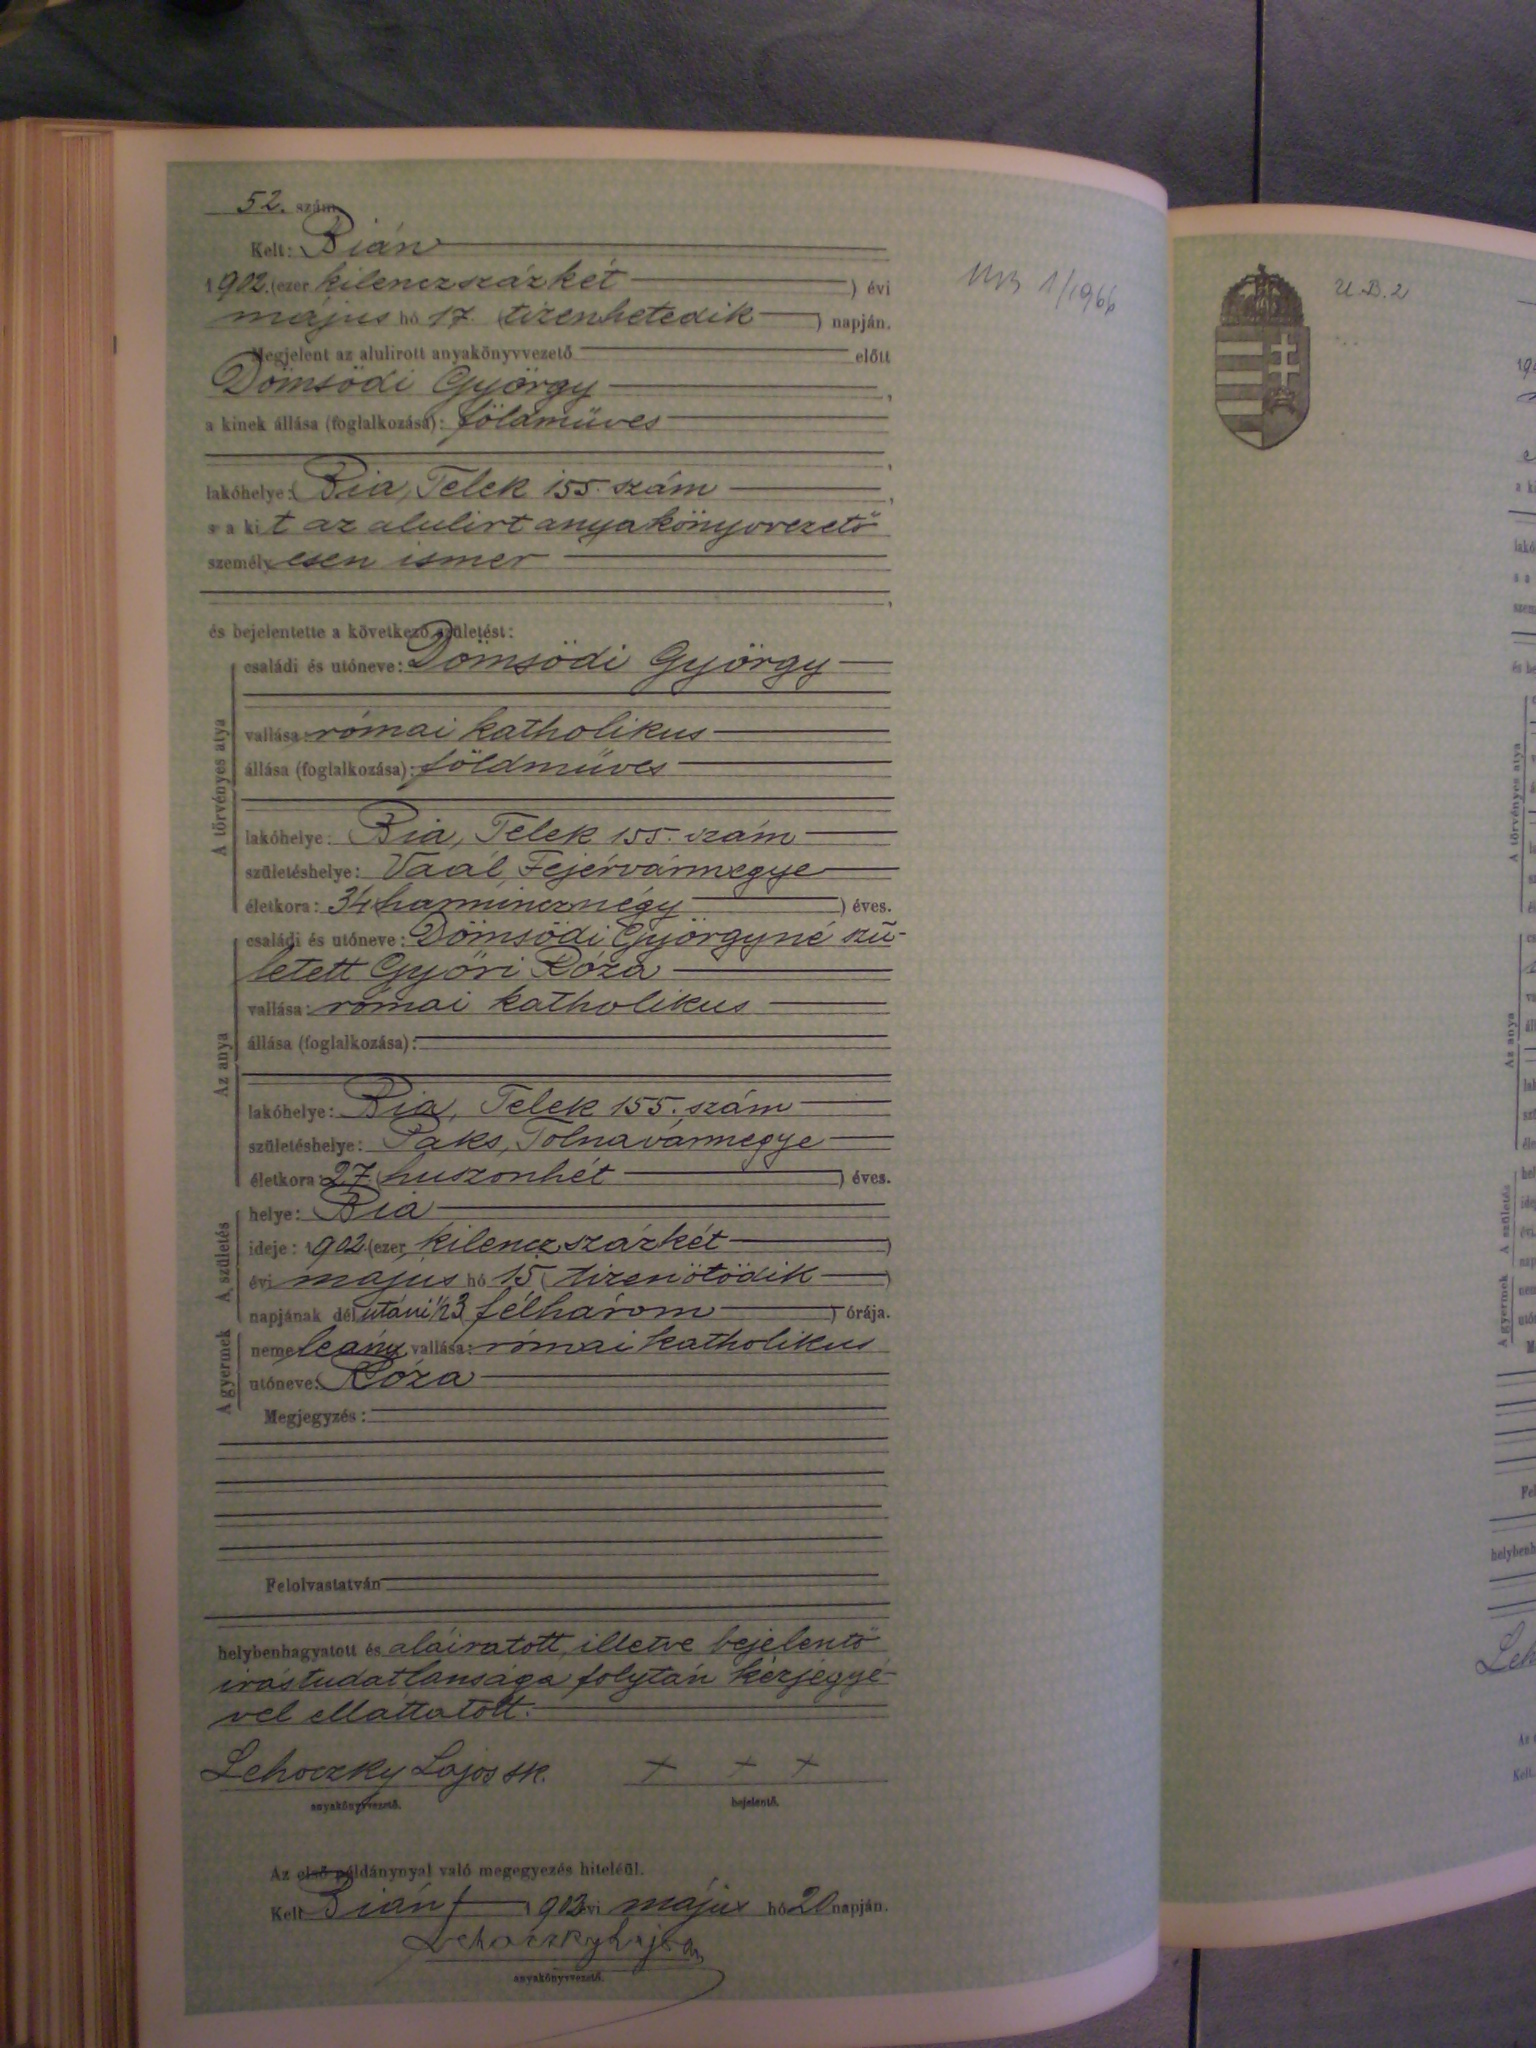 52. szám
Kelt: Bián
1902. (ezer kilenczszázkét) évi
május hó 17. (tizenhetedik) napján.
Megjelent az alulirott anyakönyvvezető előtt
Dömsödi György,
a kinek állása (foglalkozása): földmüves
,
lakóhelye: Bia, Telek 155. szám,
s a kit az alulirt anyakönyvvezető
személyesen ismer
,
és bejelentette a következő születést:
A törvényes atya
családi és utóneve: Dömsödi György
vallása: római katholikus
állása (foglalkozása): földmüves
lakóhelye: Bia, Telek 155. szám
születéshelye: Vaál, Fejérvármegye
életkora: 34 (harmincznégy) éves.
Az anya
családi és utóneve: Dömsödi Györgyné szü-
letett Győri Róza
vallása: római katholikus
állása (foglalkozása):
lakóhelye: Bia, Telek 155. szám
születéshelye: Paks, Tolnavármegye
életkora: 27. (huszonhét) éves.
A születés
helye: Bia
ideje: 1902 (ezer kilenczszázkét)
évi május hó 15 (tizenötödik)
napjának délutáni ½3 (félhárom) órája.
A gyermek
neme: leány, vallása: római katholikus
utóneve: Róza
Megjegyzés:
Felolvastatván
helybenhagyatott és aláiratott, illetve bejelentő
irástudatlansága folytán kézjegyé-
vel elláttatott.
Lehoczky Lajos sk. + + +
anyakönyvvezető. bejelentő.
Az első példánynyal való megegyezés hiteléül.
Kelt Bián, 1902 évi május hó 20 napján.
Lehoczky Lajos
anyakönyvvezető.
1/1966
U.B.2
A törvényes atya
Az anya
A születés
A gyermek